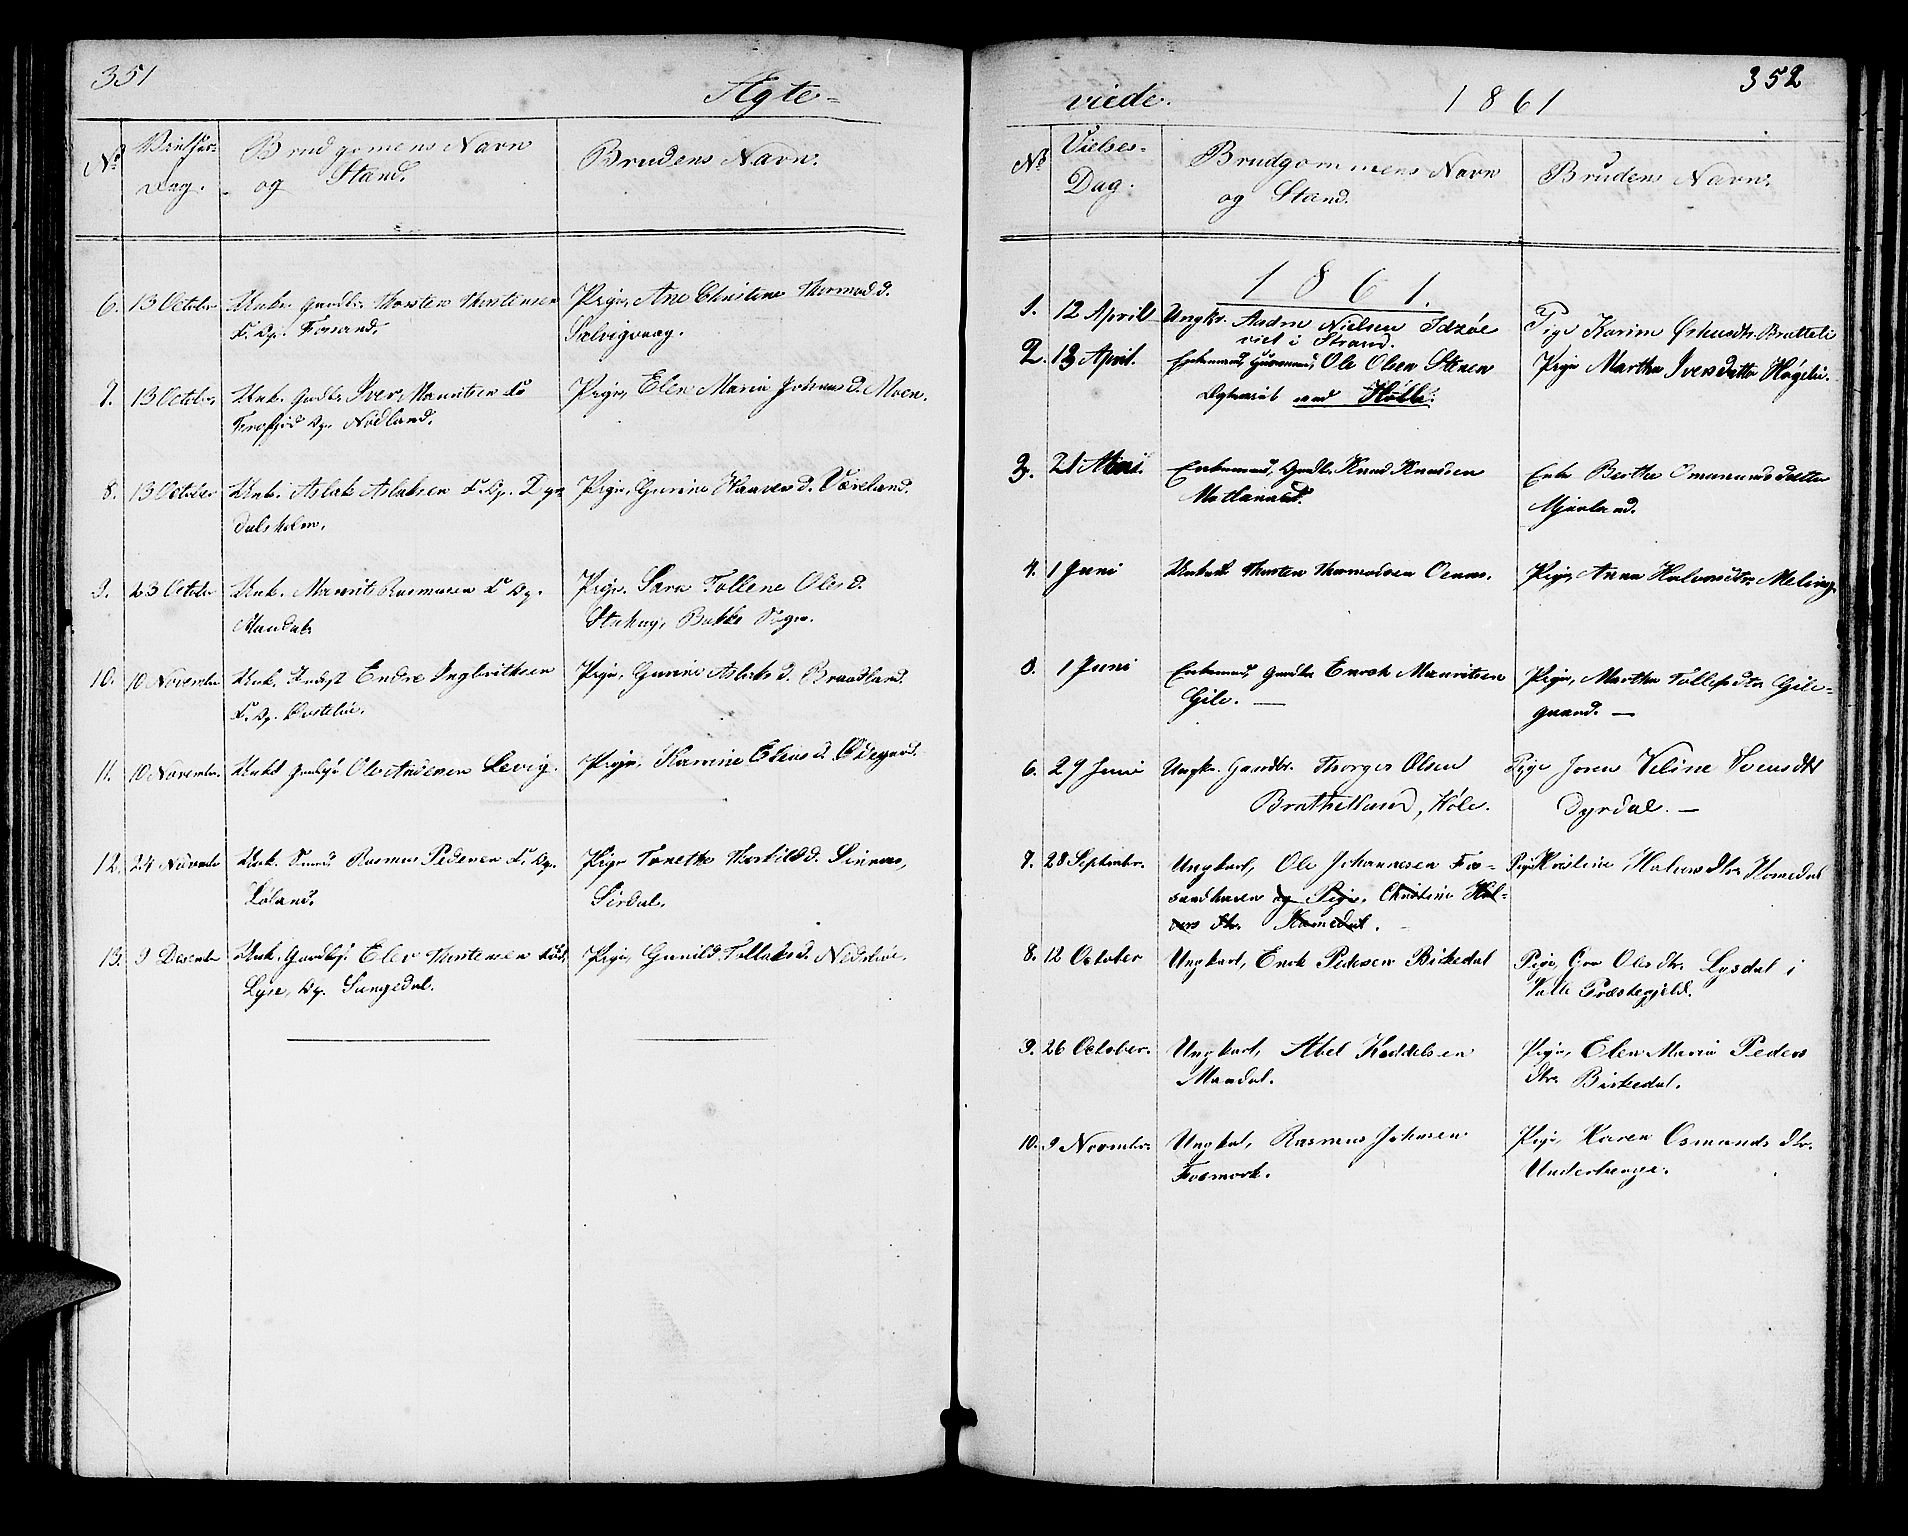 351
Ægte-
No
Vielses
Dag.
Brudgomens Navn
og Stand.
Brudens Navn.
6. 13 October Unk. Gaardbr. Thorsten Thorstensen
F. og Forsand.
Pige, Ane Christine Thormodd.
Solvigvaag.
7. 13 October Unk. Gaardbr. Iver Mauritsen
Nödland.
Pige, Elen Maria Johannesd. Moen.
8. 13 October Unk. Aslak Aslaksen F. og
dalsholm.
Pige, Gurine Haavorsd.Væreland.
9. 23 October Unk. Maurits Rasmusen F. og
Mandal.
Pige. Sara Tollene Olesd.
Bakke Sogn.
10. 10 November Unk. Endre Ingbrithsen
F. og
Pige, Gurine Aslaksd. Braadland.
11. 10 November. Unk. Ole Andersen Levig.
Pige, Karine Elensd. Ödegaard.
12. 24 November Unk. Rasmus Pedersen F. og
Löland.
Pige Tonette Thorkildsd. Sinnes,
Sirdal.
13. 9 December Unk. Gaardbr. Elev Thorstensen
Lyse, og Sangedal.
Pige, Gunild Tollaksd. Nedrebø.
352
viede. 1861
No
Vielses-
Dag.
Brudgommens Navn
og Stand.
Brudens Navn.
1861.
1. 12 April Ungkr. Andm Nielsen Idzöe
viet i Strand.
Pige Karine Østensdtr Bratteli
2. 13 April. Enkemand, Huusmand, Ole Olsen Stenen
ved Hölle.
Pige Martha Iversdatter Högelie.
3. 21 Mai. Enkemand, Gaardbr. Knud Knudsen
Metlanæs.
Enke Berthe Omundsdatter
Mjærland.
4. 1 Juni Unkarl Thorsten Thormodsen Oenæs.
Pige, Anna Halvorsdtr. Meling.
5. 1 Juni Enkemand, Gaardbr Enoch Mauritsen
Gile. —
Pige, Martha Tollefsdtr Gile-
gaard. —
6. 29 Juni Ungkr. Gaardbr. Thorger Olsen
Brathetland, Höle.
Pige Joren Veline Svensdtr
Dyrdal. —
7. 28 September. Ungkarl, Ole Johannesen Fos-
sandhaven og Pige, Christine Hal-
vors dtr. Homedal.
Pige Kristine Halvorsdtr. Homedal
8. 12 October Ungkarl, Enok Pedersen Birkedal
Pige, Gro Oles dtr. Lysdal i
Valle Præstegjeld.
9. 26 October. Ungkarl, Abel Keddelsen
Mandal.
Pige, Elen Maria Peders
dtr. Birkedal.
10. 9 November. Ungkal, Rasmus Johnsen
Fosmork.
Pige, Karen Osmunds dtr.
Underberge.